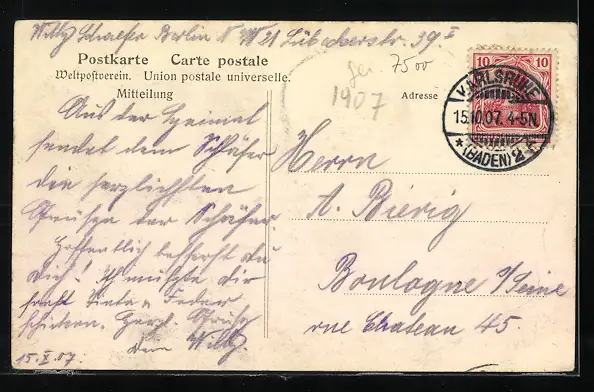 Willy Schaefer Berlin NW 21 Lübeckerstr. 39 I
Postkarte Carte postale
Weltpostverein. Union postale universelle.
Mitteilung
Adresse
1907
7500
10 10
KARLSRUHE
15.10.07. 4-5N.
*(BADEN) 2
Aus der Heimat
sendet dem Schäfer
die herzlichsten
Grüße der Schäfer.
Hoffentlich besserst du
Dich! Ich mußte dir
Tinte u. Feder
schicken. Herzl. Grüße
Dein Willy.
15. X. 07.
Herrn
A. Bierig
Boulogne s/Seine
rue Chateau 45.